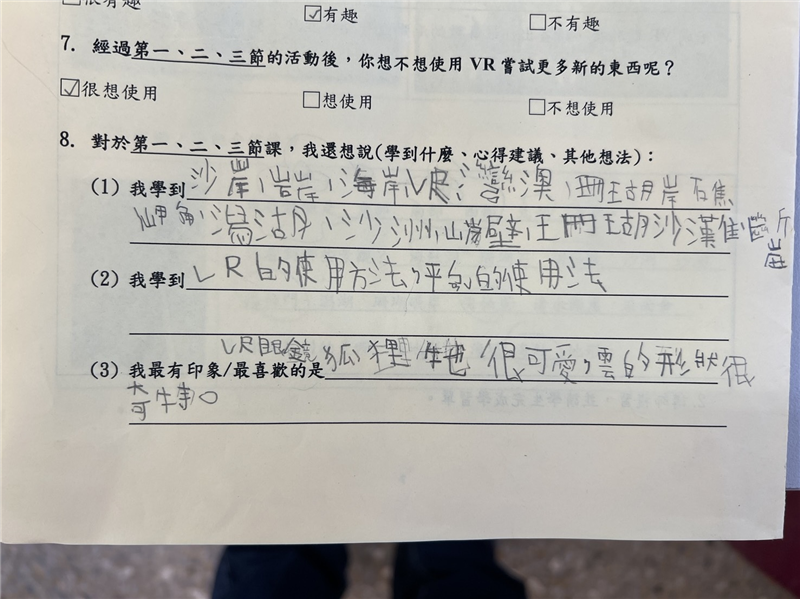 很有趣 ☑有趣 □不有趣
7. 經過第一、二、三節的活動後，你想不想使用 VR 嘗試更多新的東西呢？
☑很想使用 □想使用 □不想使用
8. 對於第一、二、三節課，我還想說(學到什麼、心得建議、其他想法)：
(1) 我學到沙岸、岩岸、海岸、灣澳、珊瑚岸 礁
岬角、潟湖、沙洲、崖壁、珊瑚沙灘、斷崖
(2) 我學到VR的使用方法，平板的使用法
VR眼鏡
(3) 我最有印象/最喜歡的是狐狸 很可愛，雲的形狀很
奇特。